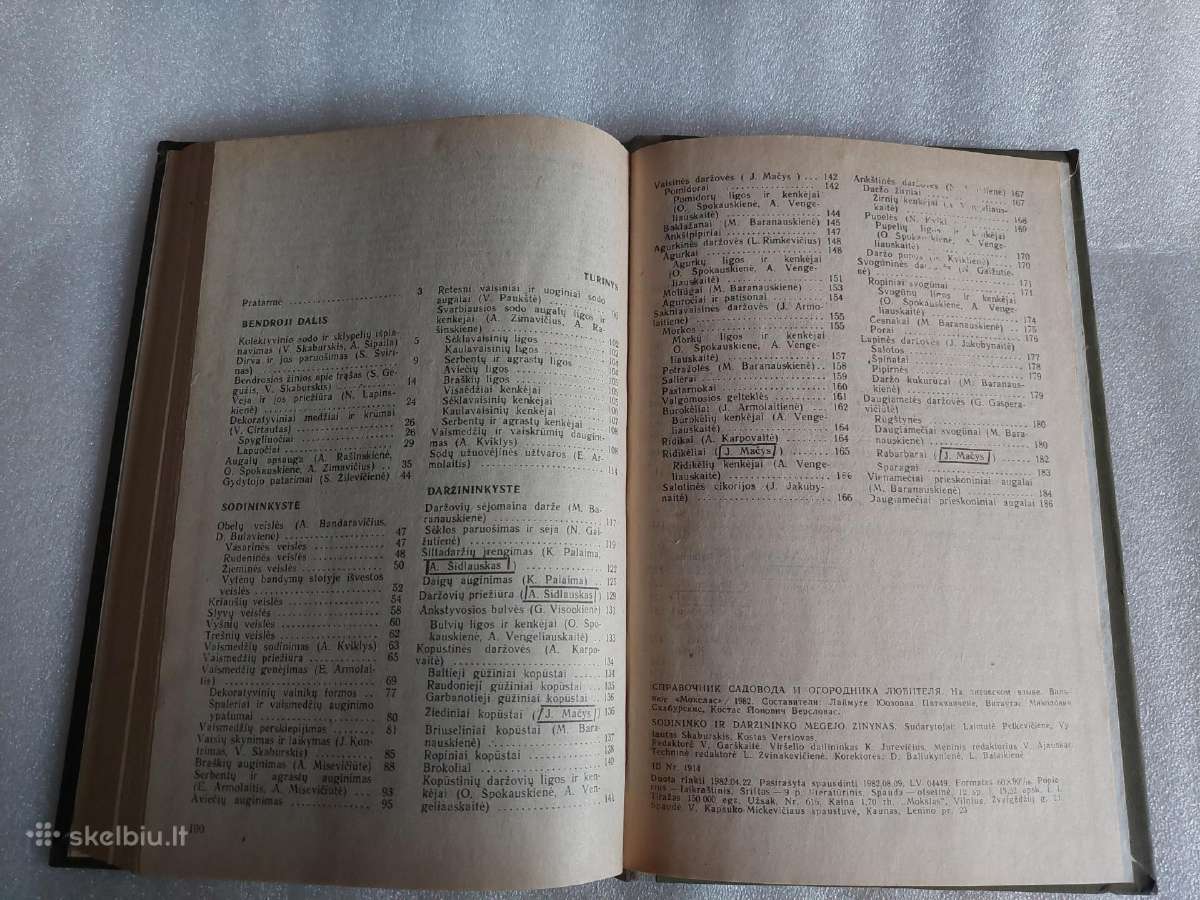 TURINYS
Pratarmė 3
BENDROJI DALIS
Kolektyvinio sodo ir sklypelių išpla-
navimas (V. Skaburskis, A. Šipaila) 5
Dirva ir jos paruošimas (S. Sviri-
nas) 9
Bendrosios žinios apie trąšas (S. Ge-
gužis, V. Skaburskis) 14
Veja ir jos priežiūra (N. Lapins-
kienė) 24
Dekoratyviniai medžiai ir krūmai
(V. Cirtautas) 26
Spygliuočiai 26
Lapuočiai 29
Augalų apsauga (A. Rašinskienė,
O. Spokauskienė, A. Zimavičius) 35
Gydytojo patarimai (S. Žilevičienė) 44
SODININKYSTĖ
Obelų veislės (A. Bandaravičius,
D. Bulavienė) 47
Vasarinės veislės 47
Rudeninės veislės 48
Žieminės veislės 50
Vytėnų bandymų stotyje išvestos
veislės 52
Kriaušių veislės 54
Slyvų veislės 58
Vyšnių veislės 60
Trešnių veislės 62
Vaismedžių sodinimas (A. Kviklys) 63
Vaismedžių priežiūra 65
Vaismedžių genėjimas (E. Armolai-
tis) 69
Dekoratyvinių vainikų formos 77
Špaleriai ir vaismedžių auginimo
ypatumai 80
Vaismedžių perskiepijimas 81
Vaisių skynimas ir laikymas (J. Kon-
trimas, V. Skaburskis) 85
Braškių auginimas (A. Misevičiūtė) 88
Serbentų ir agrastų auginimas
(E. Armolaitis, A. Misevičiūtė) 93
Aviečių auginimas 95
190
Retesni vaisiniai ir uoginiai sodo
augalai (V. Paukštė)
Svarbiausios sodo augalų ligos ir
kenkėjai (A. Zimavičius, A. Ra-
šinskienė)
Sėklavaisinių ligos 102
Kaulavaisinių ligos 103
Serbentų ir agrastų ligos 104
Aviečių ligos 104
Braškių ligos 105
Visaėdžiai kenkėjai 105
Sėklavaisinių kenkėjai 106
Kaulavaisinių kenkėjai 106
Serbentų ir agrastų kenkėjai 107
Vaismedžių ir vaiskrūmių daugini-
mas (A. Kviklys) 108
Sodų užuovėjinės užtvaros (E. Ar-
molaitis) 114
DARŽININKYSTĖ
Daržovių sėjomaina darže (M. Ba-
ranauskienė) 117
Sėklos paruošimas ir sėja (N. Gai-
žutienė) 119
Šiltadaržių įrengimas (K. Palaima,
A. Šidlauskas) 122
Daigų auginimas (K. Palaima) 125
Daržovių priežiūra (A. Šidlauskas) 129
Ankstyvosios bulvės (G. Visockienė) 131
Bulvių ligos ir kenkėjai (O. Spo-
kauskienė, A. Vengeliauskaitė) 133
Kopūstinės daržovės (A. Karpo-
vaitė) 134
Baltieji gūžiniai kopūstai 134
Raudonieji gūžiniai kopūstai 136
Garbanotieji gūžiniai kopūstai 136
Žiediniai kopūstai (J. Mačys) 136
Briuseliniai kopūstai (M. Bara-
nauskienė) 137
Ropiniai kopūstai 139
Brokoliai 140
Kopūstinių daržovių ligos ir ken-
kėjai (O. Spokauskienė, A. Ven-
geliauskaitė) 141
Vaisinės daržovės (J. Mačys) 142
Pomidorai 142
Pomidorų ligos ir kenkėjai
(O. Spokauskienė, A. Venge-
liauskaitė) 144
Baklažanai (M. Baranauskienė) 145
Ankštpipiriai 147
Agurkinės daržovės (L. Rimkevičius) 148
Agurkai 148
Agurkų ligos ir kenkėjai
(O. Spokauskienė, A. Venge-
liauskaitė) 151
Moliūgai (M. Baranauskienė) 153
Aguročiai ir patisonai 154
Šakniavaisinės daržovės (J. Armo-
laitienė) 155
Morkos 155
Morkų ligos ir kenkėjai
(O. Spokauskienė, A. Venge-
liauskaitė) 157
Petražolės (M. Baranauskienė) 158
Salierai 159
Pastarnokai 160
Valgomosios gelteklės 161
Burokėliai (J. Armolaitienė) 162
Burokėlių kenkėjai (A. Venge-
liauskaitė) 164
Ridikai (A. Karpovaitė) 164
Ridikėliai (J. Mačys) 165
Ridikėlių kenkėjai (A. Venge-
liauskaitė) 166
Salotinės cikorijos (J. Jakuby-
naitė) 166
Ankštinės daržovės 167
Daržo žirniai 167
Žirnių kenkėjai
kaitė) 168
Pupelės 169
Pupelių ligos ir kenkėjai
(O. Spokauskienė, A. Venge-
liauskaitė) 170
Daržo pupos 170
Svogūninės daržovės (N. Gaižutie-
nė) 171
Ropiniai svogūnai 171
Svogūnų ligos ir kenkėjai
(O. Spokauskienė, A. Venge-
liauskaitė) 174
Česnakai (M. Baranauskienė) 175
Porai 176
Lapinės daržovės (J. Jakubynaitė)
Salotos 177
Špinatai 178
Pipirnės 179
Daržo kukurūzai (M. Baranaus-
kienė) 179
Daugiametės daržovės (G. Gaspera-
vičiūtė)
Rūgštynės 180
Daugiamečiai svogūnai (M. Bara-
nauskienė) 180
Rabarbarai (J. Mačys) 182
Šparagai 183
Vienamečiai prieskoniniai augalai
(M. Baranauskienė) 184
Daugiamečiai prieskoniniai augalai 186
СПРАВОЧНИК САДОВОДА И ОГОРОДНИКА ЛЮБИТЕЛЯ. На литовском языке. Виль-
нюс «Мокслас» / 1982. Составители: Лаймуте Юозовна Пяткявичене, Витаутас Миколович
Скабурскис, Костас Йонович Версловас.
SODININKO IR DARŽININKO MĖGĖJO ŽINYNAS. Sudarytojai: Laimutė Petkevičienė, Vy-
tautas Skaburskis, Kostas Verslovas.
Redaktorė V. Garškaitė. Viršelio dailininkas K. Jurevičius. Meninis redaktorius V. Ajauskas.
Techninė redaktorė L. Zvinakevičienė. Korektorės: D. Baliukynienė, L. Bataikienė
IB Nr. 1914
Duota rinkti 1982.04.22. Pasirašyta spausdinti 1982.08.09. LV 04449. Formatas 60×90/16. Popie-
rius — laikraštinis. Šriftas — 9 p. literatūrinis. Spauda — ofsetinė.
Tiražas 150 000 egz. Užsak. Nr. 616. Kaina 1,70 rb. „Mokslas", Vilnius, Žvaigždžių g. 23.
Spaudė V. Kapsuko-Mickevičiaus spaustuvė, Kaunas, Lenino pr. 23
skelbiu.lt